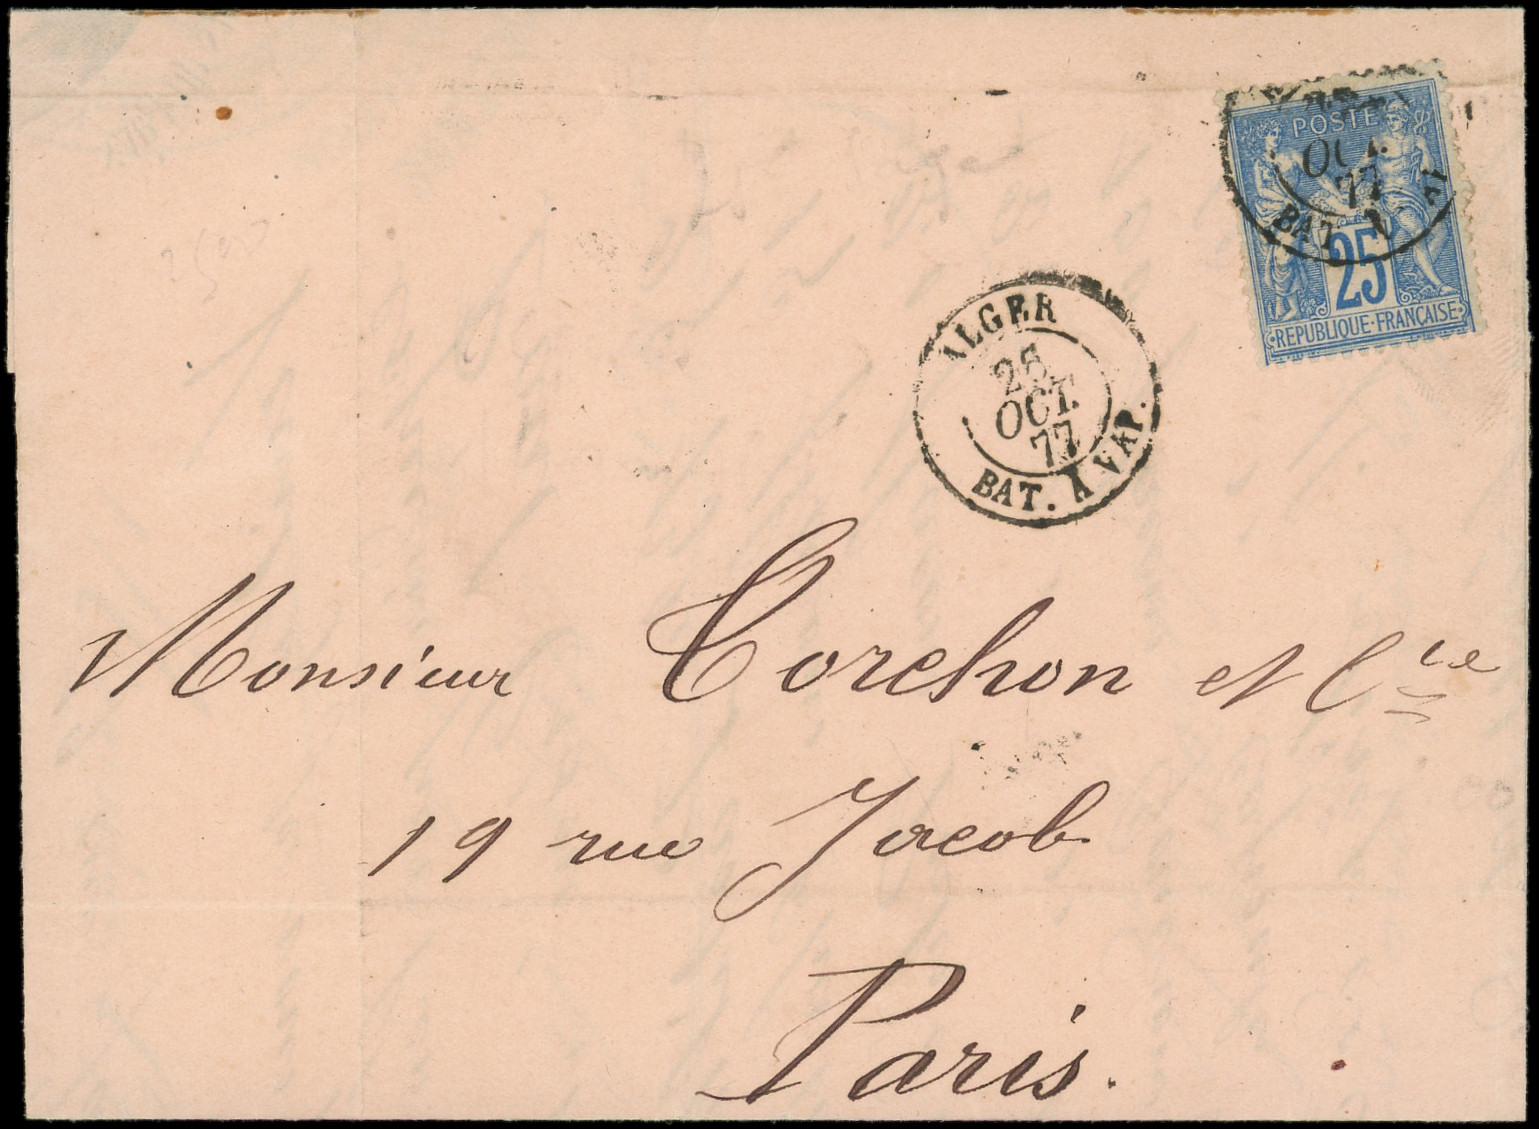 POSTE
OCT.
77
BAT.
25
REPUBLIQUE·FRANÇAISE
ALGER
25
OCT.
77
BAT. A VAP.
Monsieur Torchon et Cie
19 rue Jacob
Paris.